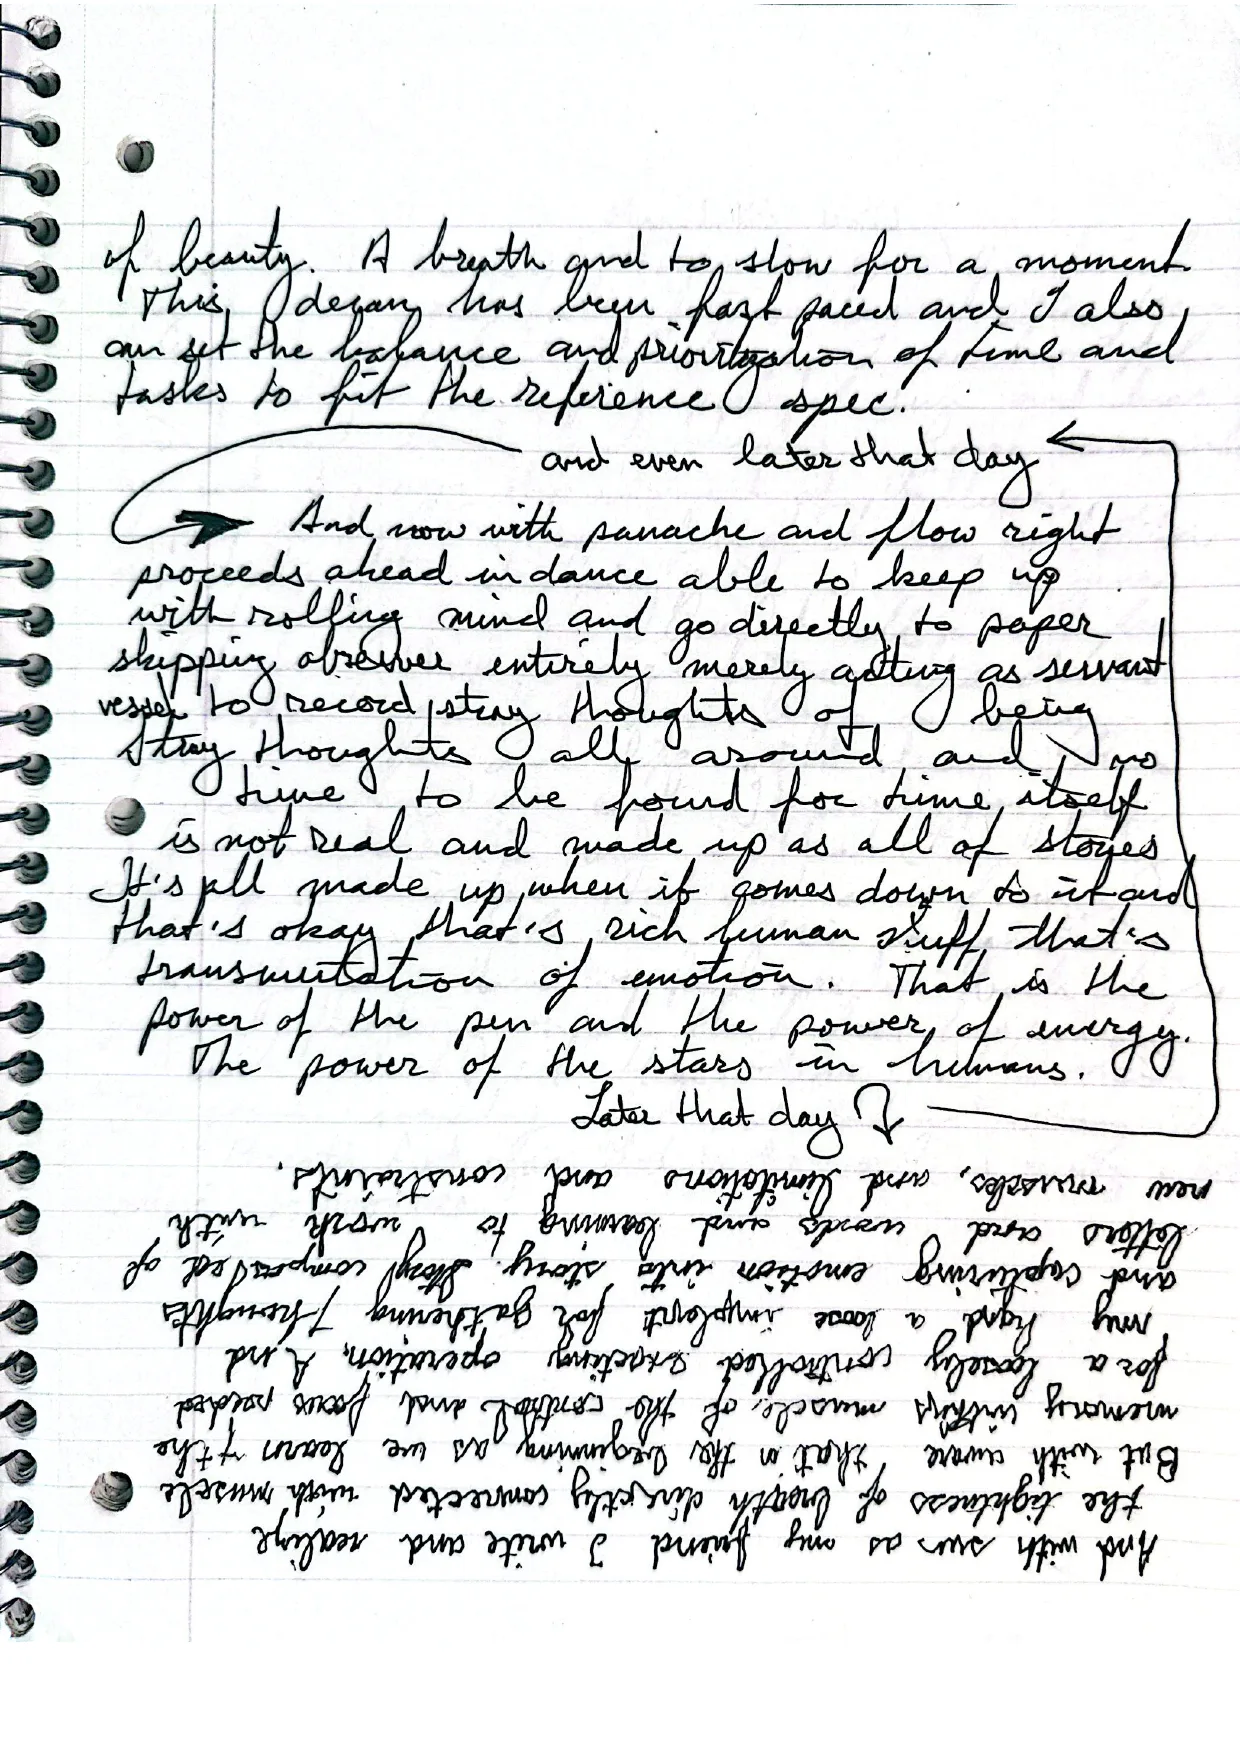 of beauty. A breath and to slow for a moment.
This decan has been fast paced and I also
can set the balance and priorization of time and
tasks to fit the reference spec.
and even later that day
And now with panache and flow right
proceeds ahead in dance able to keep up
with rolling mind and go directly to paper
skipping observer entirely merely acting as servant
vessel to record stray thoughts of being
stray thoughts all around and no
time to be found for time itself
is not real and made up as all of stories
It's all made up when it comes down to it and
that's okay that's rich human stuff that's
transmutation of emotion. That is the
power of the pen and the power of energy.
The power of the stars in humans.
Later that day
And with sun as my friend I write and realize
the tightness of breath directly connected with muscle
But with aware that in the beginning as we learn the
memory within muscle of the control and focus needed
for a loosely controlled exacting operation. And
my hand a loose implent for gathering thoughts
and capturing emotion into story. Story composed of
letters and words and learning to work with
new muscles, and limitations and constraints.